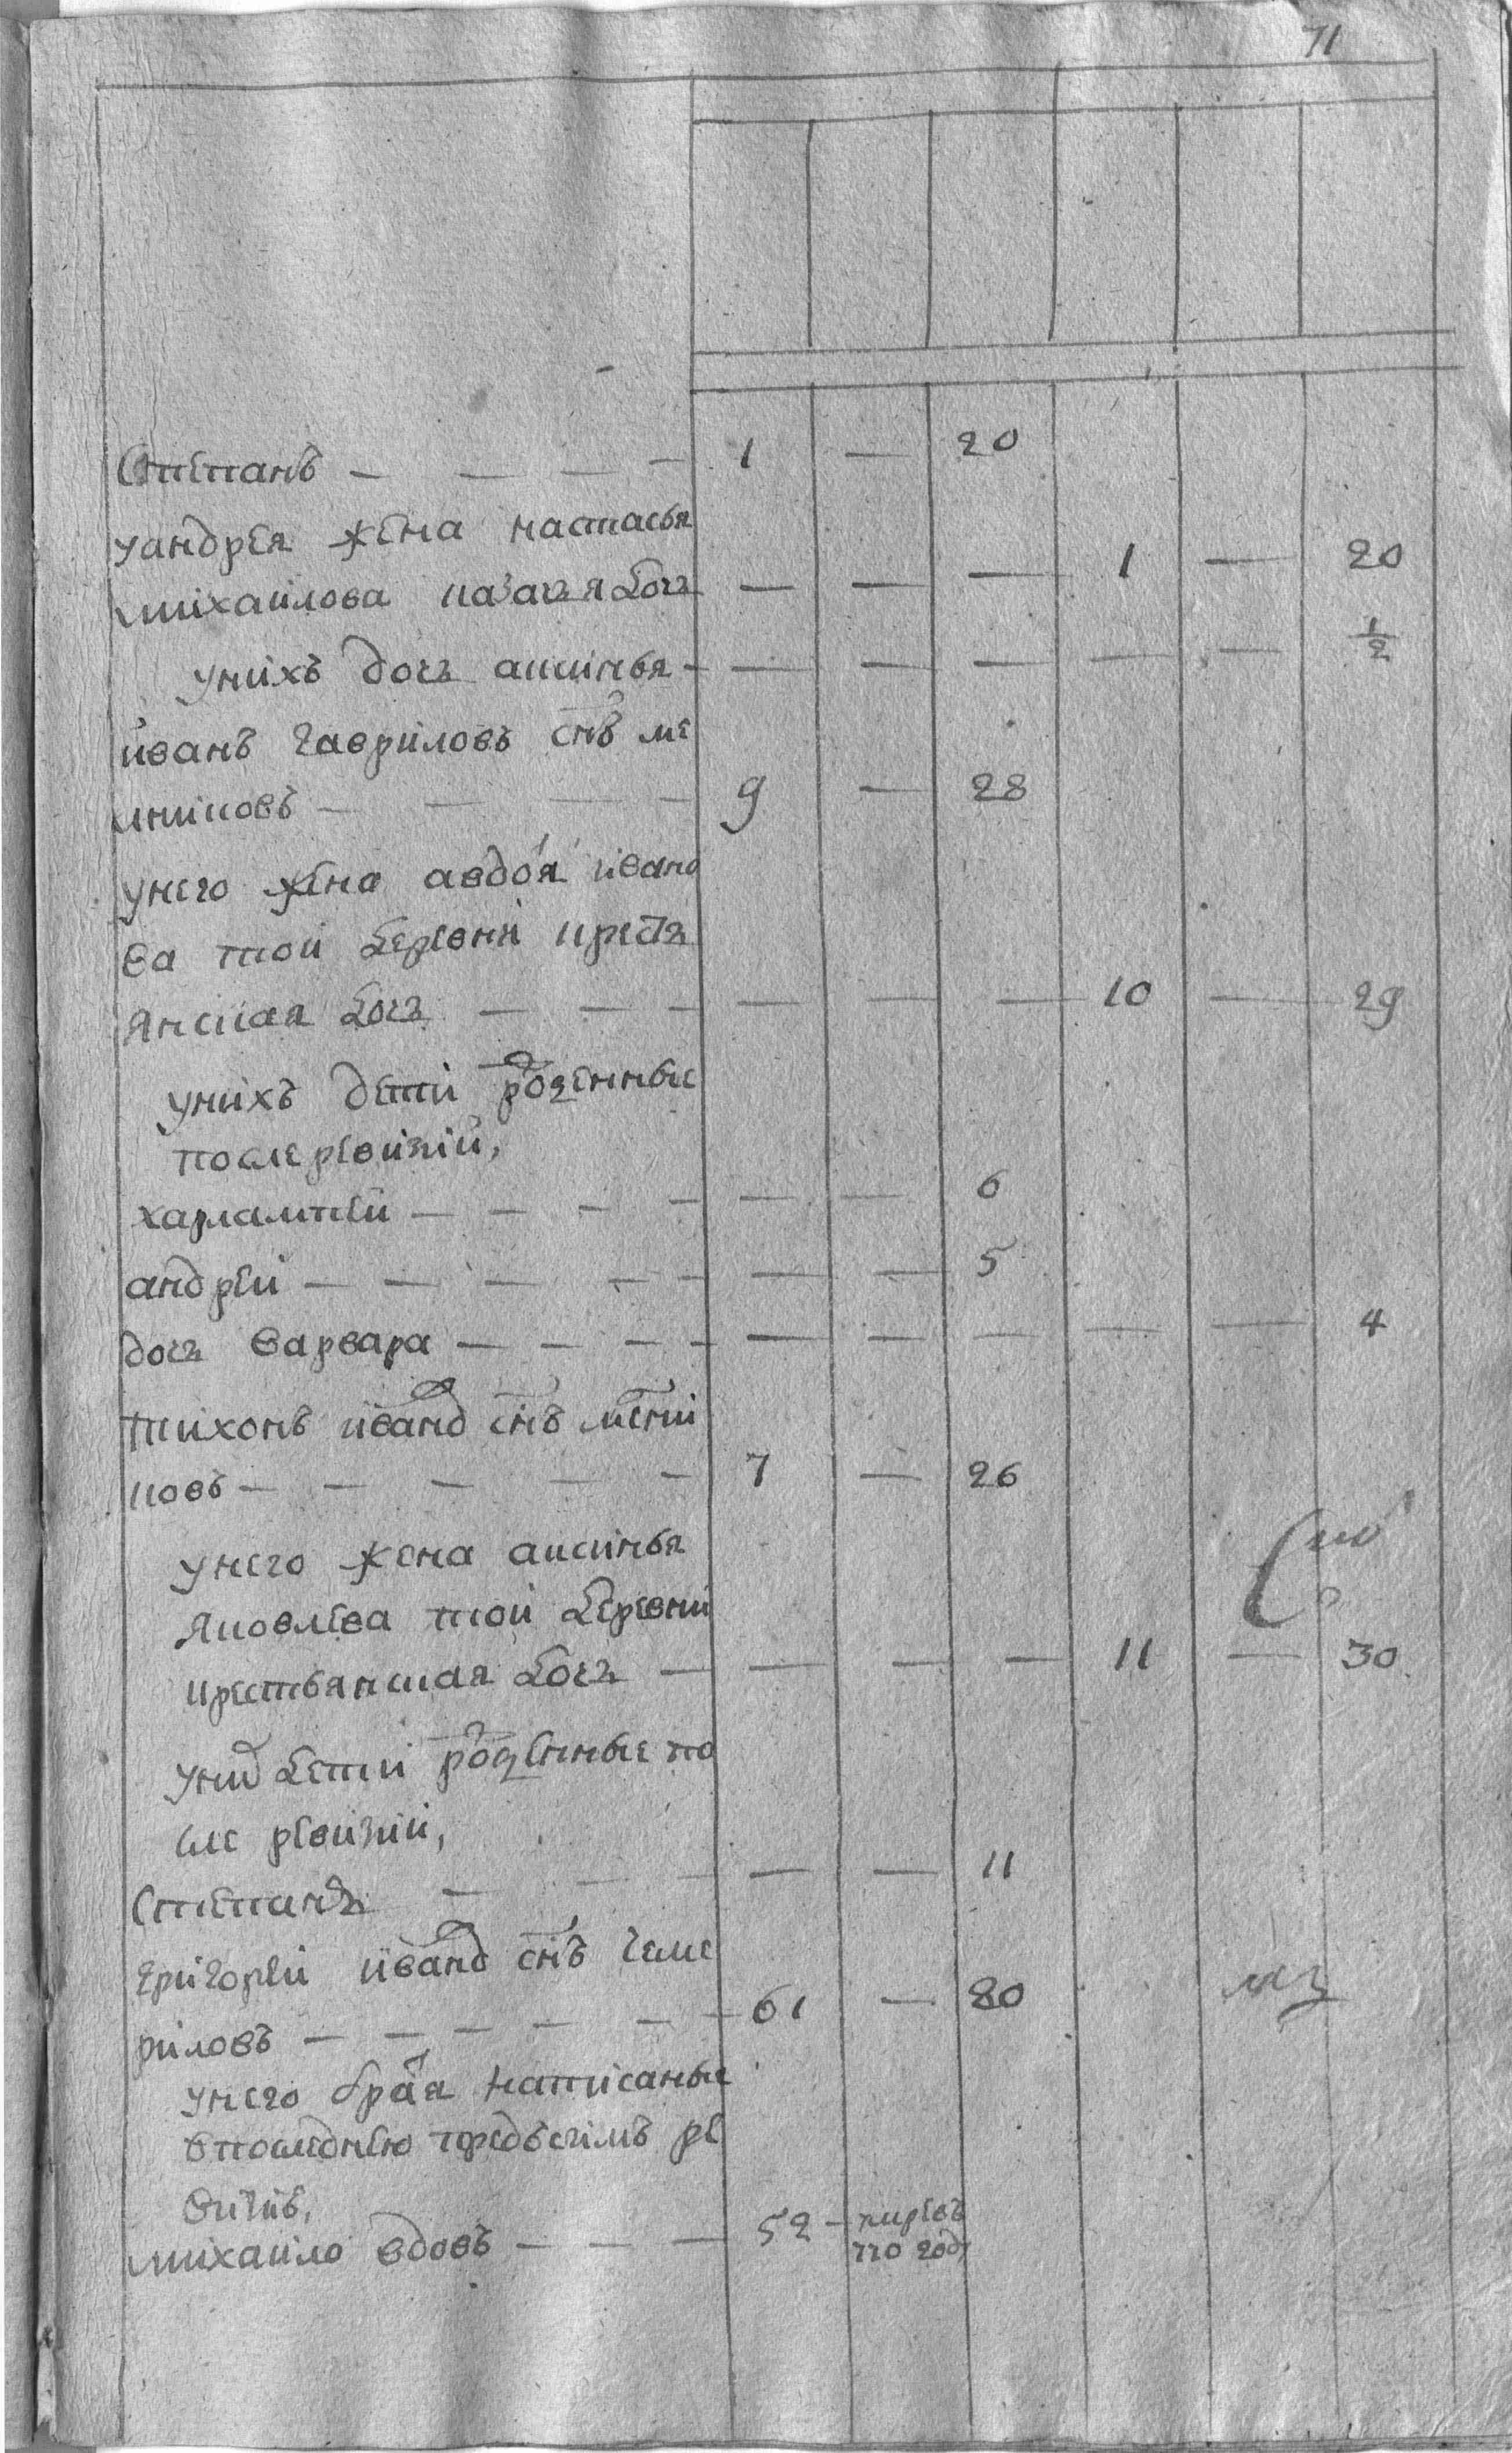 71
Степанъ — — — — 1 — 20
уандрея жена настасья
михаилова казачья дочь — — — 1 — 20
унихъ дочь аксинья — — — — — — 1/2
иванъ гавриловъ снъ ме
шниковъ — — — — 9 — 28
унего жена авдотя ивано
ва той деревни крестя
янская дочь — — — — — — 10 — 29
унихъ дети рожденные
после ревизии,
харлампеи — — — — — — 6
андреи — — — — — — — 5
дочь варвара — — — — — — — — — 4
тихонъ иванов снъ мени
ковъ — — — — — 7 — 26
унего жена аксинья
яковлева той деревни
крестьянская дочь — — — — 11 — 30
уних дети рожденные по
сле ревизии,
Степанъ — — — — — 11
григореи иванов снъ чеме
риловъ — — — — — — 61 — 80
унего братя написаные
впоследнею предъсимъ ре
визию,
михаило вдовъ — — — 52 —
по году